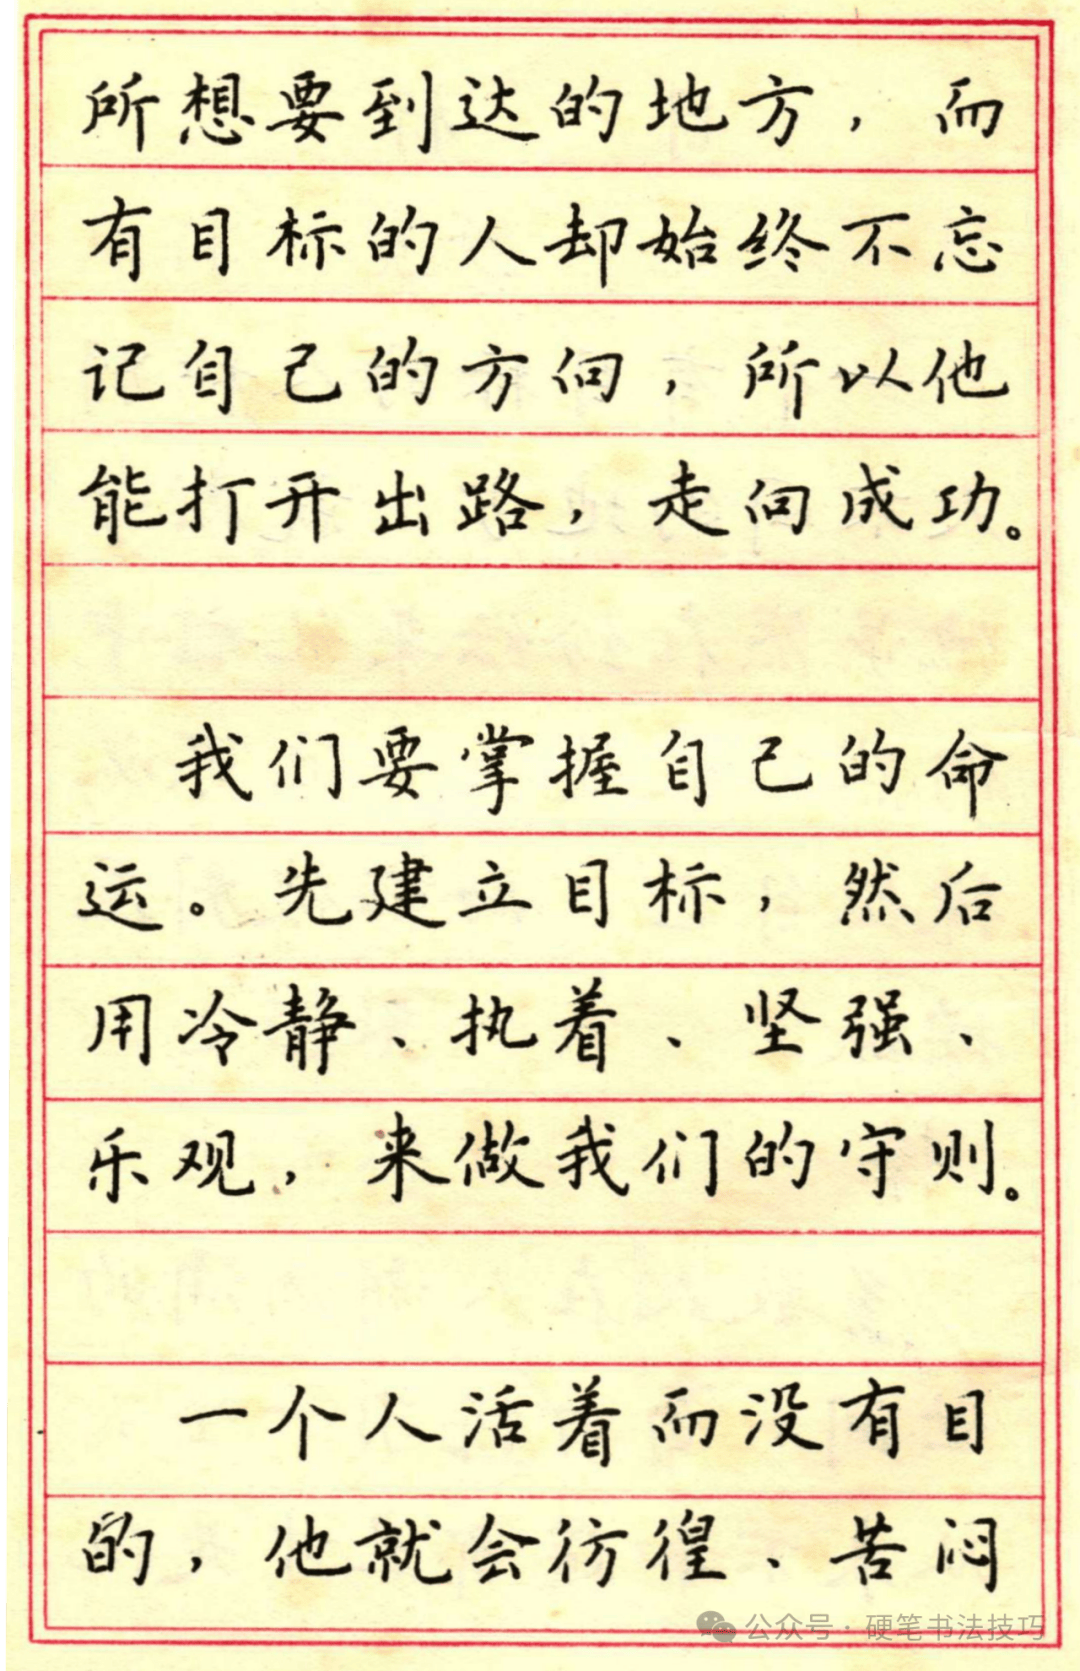 所想要到达的地方，而
有目标的人却始终不忘
记自己的方向，所以他
能打开出路，走向成功。
我们要掌握自己的命
运。先建立目标，然后
用冷静、执着、坚强、
乐观，来做我们的守则。
一个人活着而没有目
的，他就会彷徨、苦闷
公众号·硬笔书法技巧